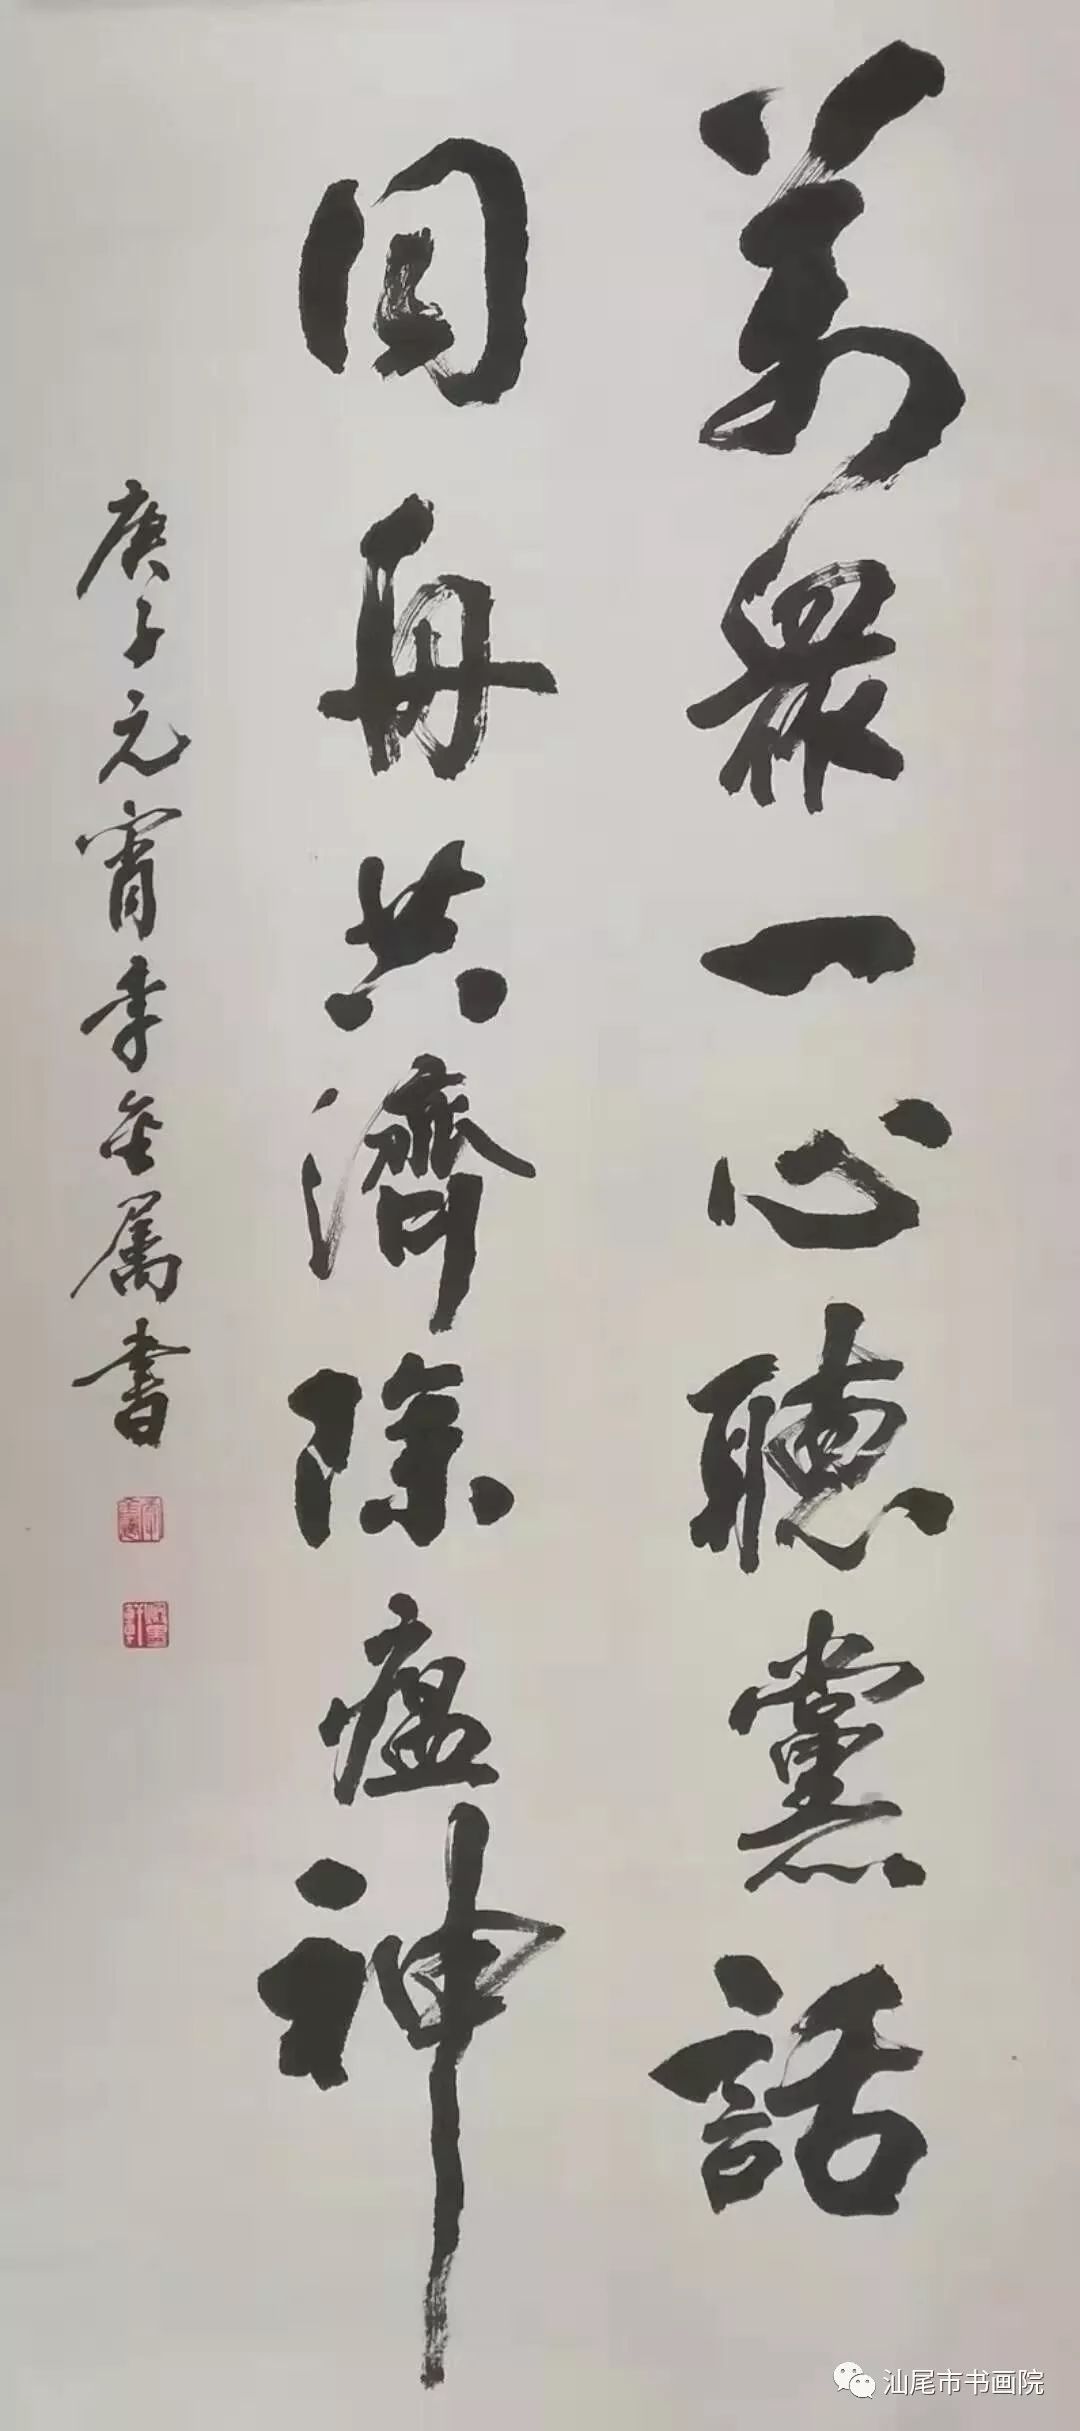 萬眾一心聽黨話
同舟共濟除瘟神
庚子元宵李金屬書
汕尾市书画院